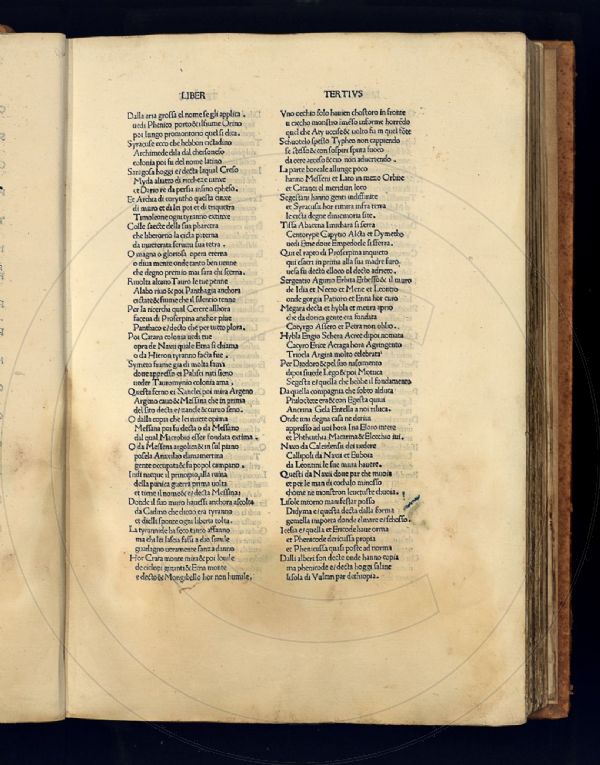 LIBER
TERTIVS
Dalla aria grossa el nome se gli applica
uedi Phenico porto & il fiume Orino
poi lungo promontorio quel si dica.
Syracuse ecco che hebbon cictadino
Archimede dila dal chersoneso
colonia poi fu del nome latino
Sarigosa hoggi e decta laqual Creso
Myda aliatto di richeze uinxe
et Dario re da persia infino epheso.
Et Archia di coryntho questa cinxe
di muro et da lei poi et di triquetra
Timoleone ogni tyranno extinxe
Colle saecte della sua pharetra
che liberorno la cicta paterna
da inueterata seruitu sua tetra.
O magna o gloriosa opera eterna
o diua mente onde tanto ben uenne
che degno premio mai sara chi scerna.
Riuolta alcano Tauro le tue penne
Alabo riuo & poi Panthagia anchora
cictate & fiume che il silentio tenne
Per la ricercha qual Cerere allhora
faceua di Proserpina anchor piue
Panthaco e decto che per tutto plora.
Poi Catana colonia uedi tue
opra de Naxii quale Etna si chiama
o da Hieron tyranno facta fue.
Symeto fiume gia di molta fama
done appresso et Palisci nati sieno
ueder Tauromynio colonia ama.
Questa fermo et Sanclei poi mira Argeno
Argino cauo & Messina che in prima
del sito decta e zancle & curuo seno.
O dalla copia che le mette opima
Messana poi fu decta o da Messano
dal qual Macrobio esser fondata extima.
O da Messena argolica & in sul piano
posela Anaxilao dimamertina
gente occupata & fu popol campano.
Indi nacque il principio, alla ruina
della punica guerra prima uolta
et tiene il nome & e decta Messina
Donde il suo muro hauessi anchora ascolta
da Catino che dieno era tyranno
et dielli ponte ogni liberta tolta.
La tyrannide ha seco tanto affanno
ma chi lei lascia fassi a dio simile
guadagno ueramente sanza danno
Hor Crata monte mira & poi louile
de ciclopi giganti & Etna monte
e decto & Mongibello hor non humile.
Vno occhio solo hauien chostoro in fronte
u ciecho monstro imenso informe horrēdo
quel che Aty uccise & uolto fu in quel fōte
Schuotelo spesso Typheo non cappiendo
se stesso & con sospiri sputa fuoco
da cete acceso & cio non aduertendo.
La parte boreale allunge poco
hanno Messeni et Lato in mezo Orbine
et Catanei el meridian loco
Segestani hanno genti indiffinite
et Syracusa hor rimira infra terra
le cicta degne dimemoria site.
Tissa Abacena Imithara si serra
Centorype Capytio Alcta et Dymetho
uedi Etne doue Empedocle si sferra.
Qui el rapto di Proserpina inquieto
qui esseri in prima alla sua madre furo
uersa fu decto elloco el decto adrieto.
Sergentio Agurio Erbita Erbesso & il muro
de Idia et Neeto et Mene et Leontio
onde gorgia Patioro et Enna hor curo
Megara decta et hybla et menra aprio
che da dorica gente era fondata
Cotyrgo Assero et Petra non oblio.
Hybla Engio Schera Acree dipoi notata
Cacyro Erice Acraga hora Agringento
Triocla Argina molto celebrata
Per Diodoro & pel suo nascimento
dipoi siuede Lego & poi Motuca
Segesta e quella che hebbe il fondamento
Da quella compagnia che sobto alduca
Philoctete era & con Egesta quiui
Ancrina Gela Entella a noi riluca.
Onde una degna casa ne deriui
appresso ad uoi hora Ina Eloro intere
et Phthinthia Macarina & Electhio iui.
Naxo da Calcidensi dei uedere
Callipoli da Naxii et Euboia
da Leontini le sue mura hauere.
Questi da Naxii done par che muoia
et per le man di cochalo minosso
chome ne monstron leuetuste chuoia
Lisole intorno manifestar posso
Didyma e questa decta dalla forma
gemella importa donde el mare e schosso.
Icesia e quella et Ericode haue orma
et Phenicode dericussa propia
et Phenicussa quasi poste ad norma
Dalli alberi son decte onde hanno copia
ma phenicode e decta hoggi saline
lisola di Vulcan par dethiopia.